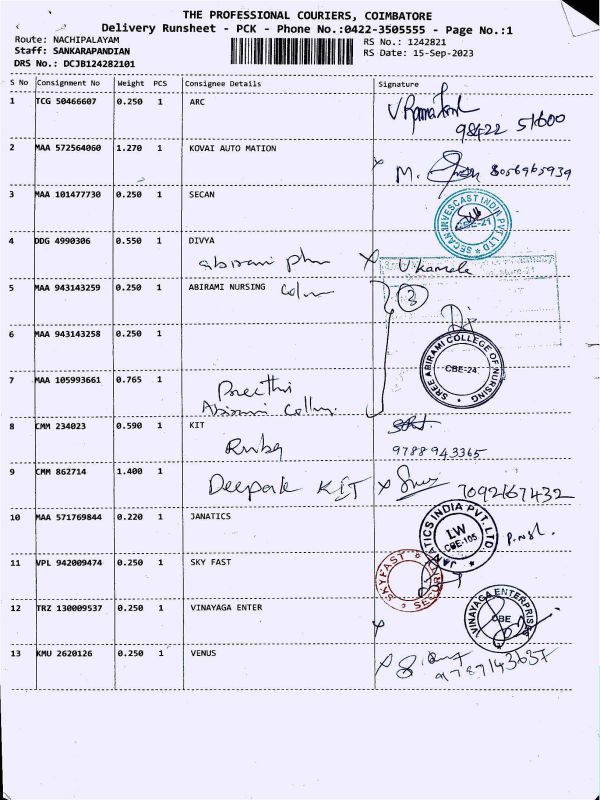 THE PROFESSIONAL COURIERS, COIMBATORE
Delivery Runsheet - PCK - Phone No.:0422-3505555 - Page No.:1
Route: NACHIPALAYAM
RS No.: 1242821
Staff: SANKARAPANDIAN
RS Date: 15-Sep-2023
DRS No.: DCJB124282101
S No Consignment No Weight PCS Consignee Details Signature
1 TCG 50466607 0.250 1 ARC
98422 51600
2 MAA 572564060 1.270 1 KOVAI AUTO MATION
M. 8056965939
3 MAA 101477730 0.250 1 SECAN
SECAN INVESCAST INDIA PVT LTD
CBE-21
4 DDG 4990306 0.550 1 DIVYA
abirami phm V Kamala
5 MAA 943143259 0.250 1 ABIRAMI NURSING
3
6 MAA 943143258 0.250 1
SREE ABIRAMI COLLEGE OF NURSING
CBE-24.
7 MAA 105993661 0.765 1
Preethi
Abirami
8 CMM 234023 0.590 1 KIT
Ruby 9788943365
9 CMM 862714 1.400 1
Deepak KIT 7092167432
10 MAA 571769844 0.220 1 JANATICS
JANATICS INDIA PVT. LTD.
LW
CBE-105
11 VPL 942009474 0.250 1 SKY FAST
SKYFAST SECURITY
12 TRZ 130009537 0.250 1 VINAYAGA ENTER
VINAYAGA ENTERPRISES
CBE
13 KMU 2620126 0.250 1 VENUS
9787143637